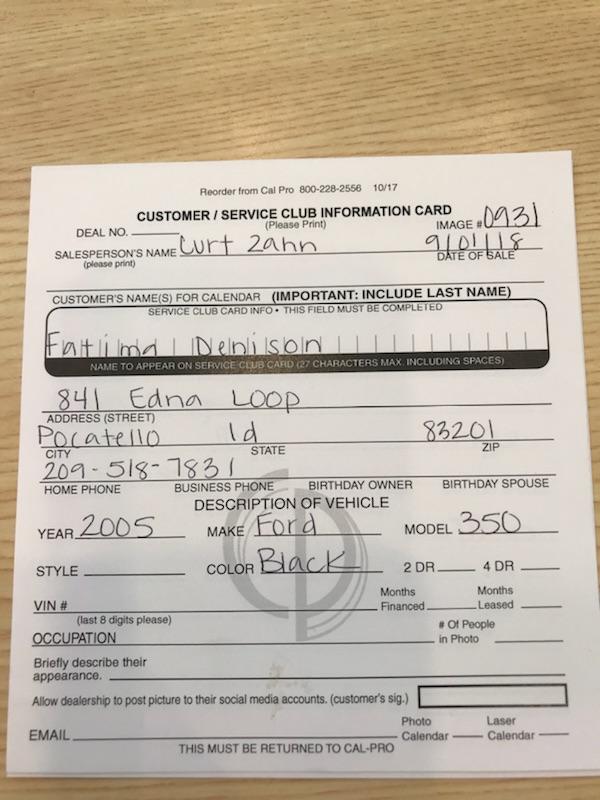 Reorder from Cal Pro 800-228-2556 10/17
CUSTOMER / SERVICE CLUB INFORMATION CARD
(Please Print)
DEAL NO. IMAGE # 0931
SALESPERSON'S NAME Curt Zahn 9/01/18
(please print) DATE OF SALE
CUSTOMER'S NAME(S) FOR CALENDAR (IMPORTANT: INCLUDE LAST NAME)
SERVICE CLUB CARD INFO • THIS FIELD MUST BE COMPLETED
Fatima Denison
NAME TO APPEAR ON SERVICE CLUB CARD (27 CHARACTERS MAX. INCLUDING SPACES)
841 Edna Loop
ADDRESS (STREET)
Pocatello Id 83201
CITY STATE ZIP
209-518-7831
HOME PHONE BUSINESS PHONE BIRTHDAY OWNER BIRTHDAY SPOUSE
DESCRIPTION OF VEHICLE
YEAR 2005 MAKE Ford MODEL 350
STYLE COLOR Black 2 DR. 4 DR
VIN # Months Financed Months Leased
(last 8 digits please)
OCCUPATION # Of People in Photo
Briefly describe their
appearance.
Allow dealership to post picture to their social media accounts. (customer's sig.)
EMAIL Photo Calendar Laser Calendar
THIS MUST BE RETURNED TO CAL-PRO